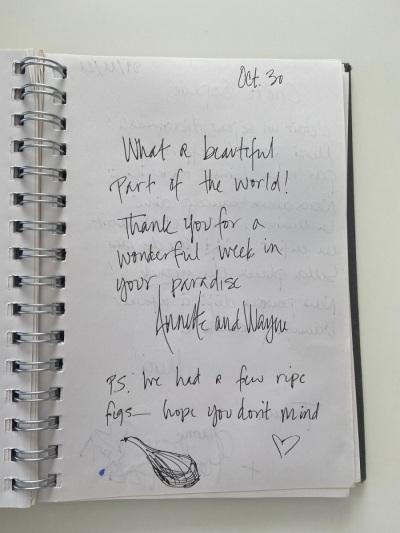 Oct. 30
What a beautiful
part of the world!
Thank you for a
wonderful week in
your paradise
Annette and Wayne
P.S. We had a few ripe
figs — hope you don't mind